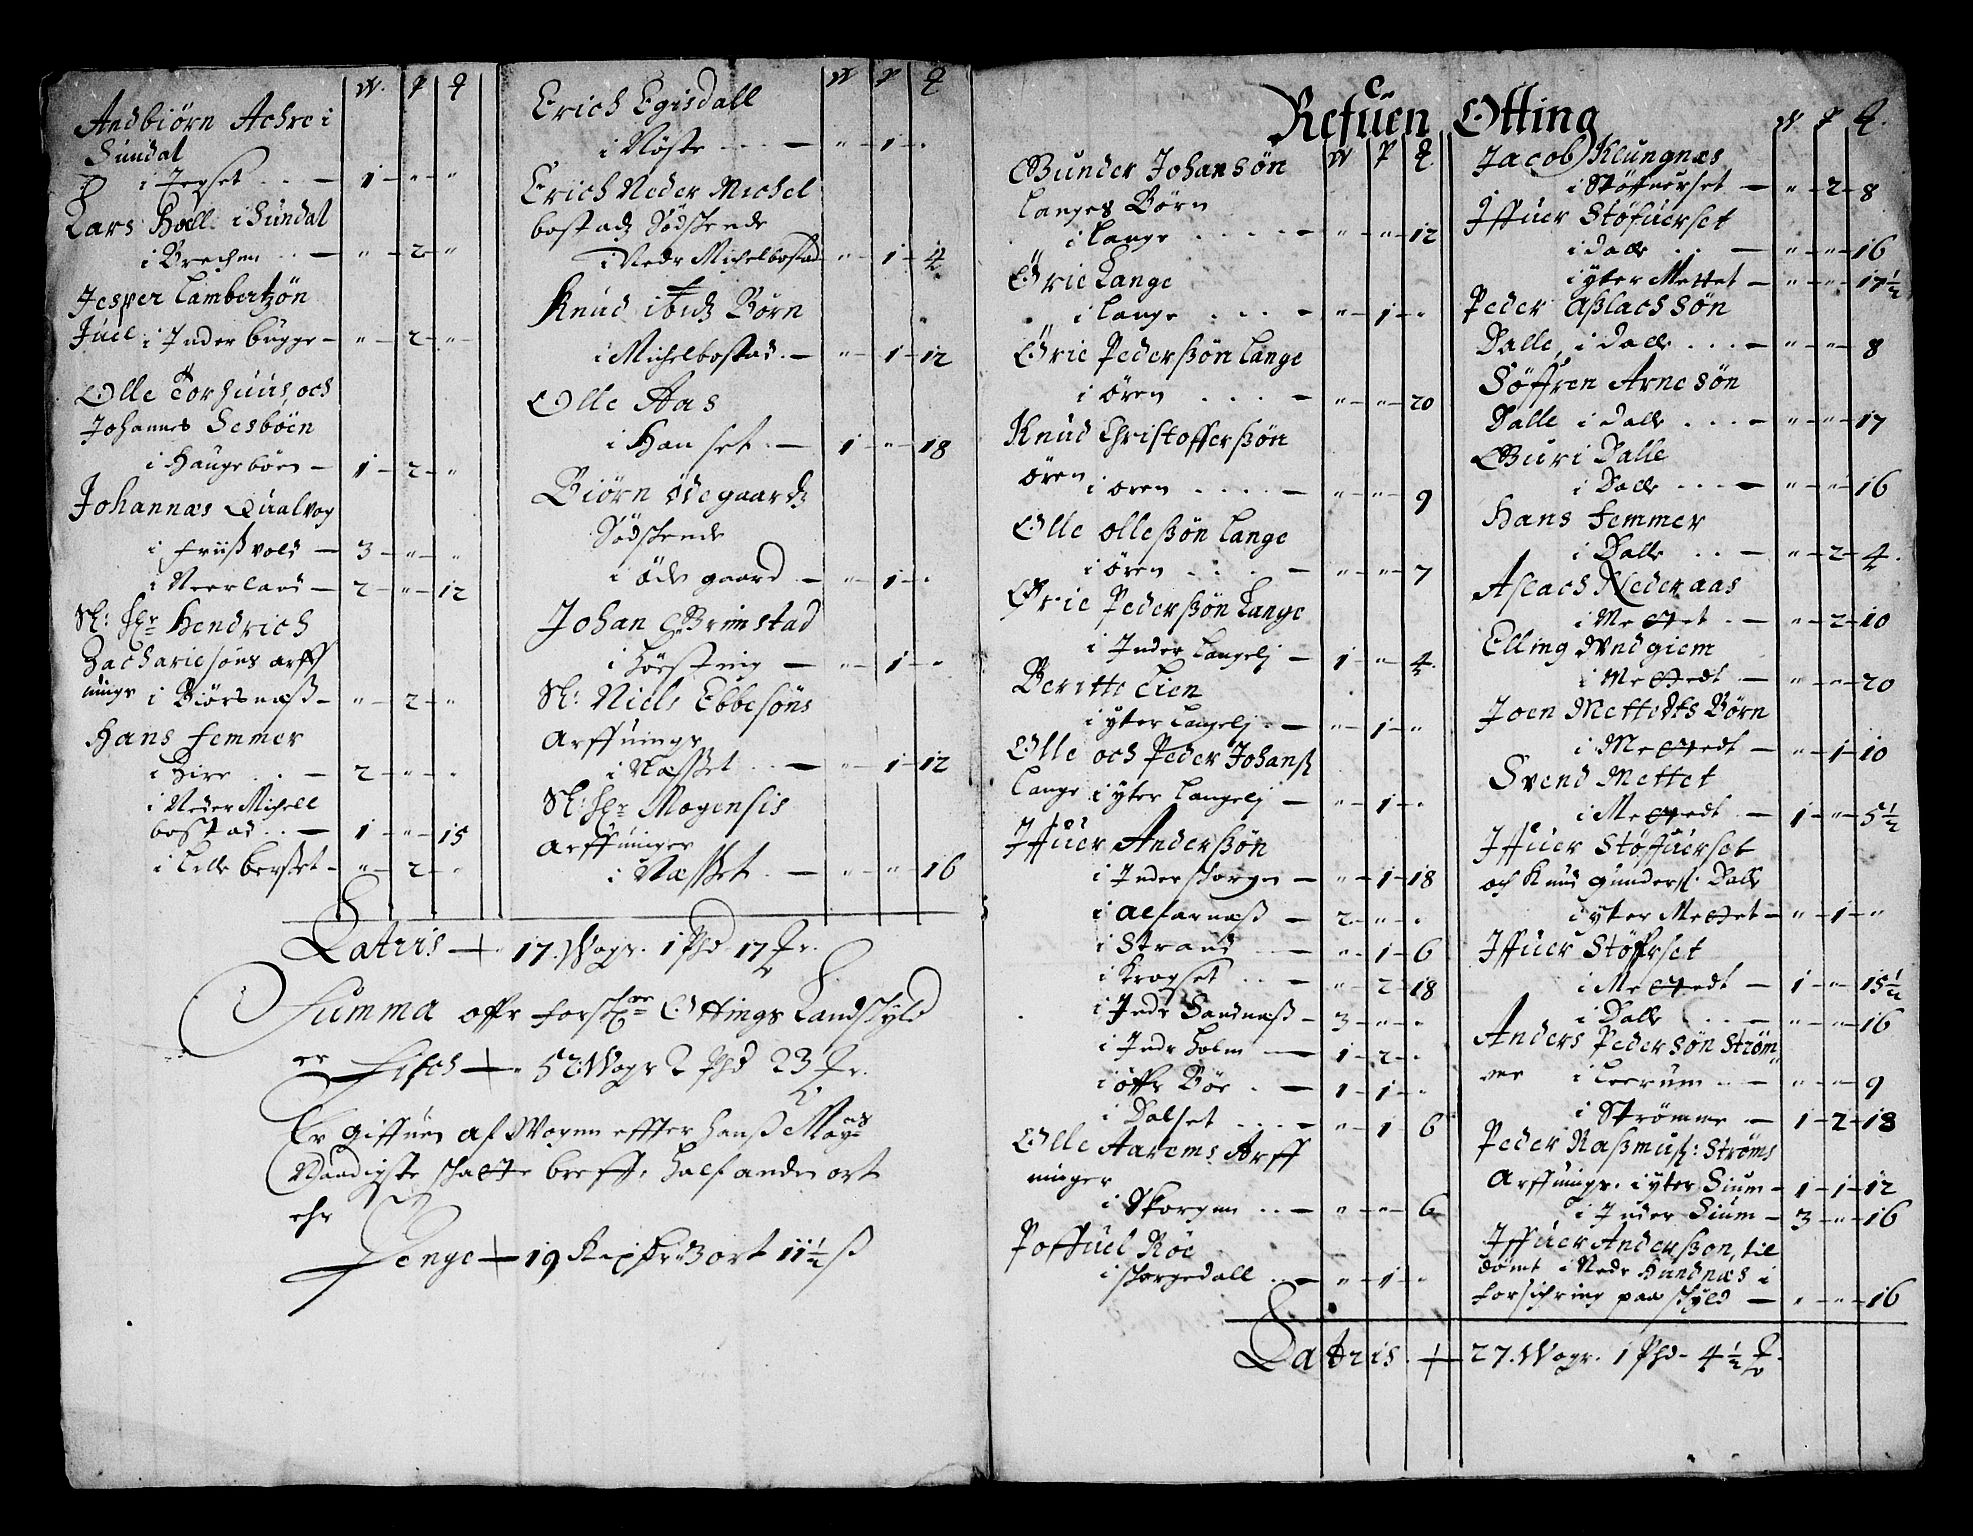 W. P ℔
Andbiörn Achre i
Sundal
i Jerset . . — 1 - " - "
Lars Hoell i Sundal
i Brechen . . — " - 2 - "
Jesper Lambertzön
Juel i Inder bugge — " - 2 - "
Olle Torhuus, och
Johannes Sesböen
i Haugeböen — 1 - 2 - "
Johannes Qualvog
i friißvold — 3 - " - "
i Neerland — 2 - " - 12
Sl: Hr Hendrich
Zachariesöns arff
uinger i Biörsnæß — " - 2 - "
Hans Femmer
i Hire . . — 2 - " - "
i Neder Michell
bostad . . — 1 - " - 15
i Lille berset — " - 2 - "
W P ℔
Erich Egisdall
i Nöste . . . — " - 1 - "
Erich Neder Michel
bostads Södskende
i Nedr Michelbostad " - 1 - 4
Knud Börn
i Michelbostad . — " - 1 - 12
Olle Aas
i Han set . — 1 - " - 18
Biörn ödegaards
Södskende
i öde gaard — " - 1 - "
Johan Grimstad
i Hörsting — " - 1 - "
Sl: Niels Ebbesöns
Arffuinge
i Næsset . . — " - 1 - 12
Sl: Hr Mogensis
Arffuinger
i Næsset . — " - " - 16
Latris — 17. Woger. 1 Pd 17 ℔r.
Summa offr forschr Ottings Landskyld
er Fisch — 52. Woger 2 Pd 23 ℔r.
Er giffuen af Wogen effter Hanß Mayts
Naadigste skatte breff, half anden ort
ehr
Penge — 19 Rixdr 3 ort 11½ ß
Refuen Otting
W P ℔
Gunder Johansön
Langes Börn
i Lange . . . . — " - " - 12
Ørie Lange
i Lange . . . — " - 1 - "
Ørie Pederßön Lange
i ören . . . — " - " - 20
Knud Christofferßön
ören i ören . . . . — " - " - 9
Olle olleßön Lange
i ören . . . — " - " - 7
Ørie Pederßön Lange
i Inder Langelj — 1 - " - 4
Beritte Lien
i yter Langelj . — " - 1 - "
Olle och Peder Johanß
Lange i yter Langelj — " - 1 - "
Iffuer Anderßön
i Inder skorgen — " - 1 - 18
i alfarnæß — 2 - " - "
i Strand . — " - 1 - 6
i Krogset . . — " - 2 - 18
i Indr Sandnæß — 3 - " - "
i Indr holm — 1 - 2 - "
i öffr Böe . — 1 - 1 - "
i Dalset . . . — " - 1 6
Olle Aarems Arff
uinger
i Skorgen . . — " - " - 6
Poffuel Röe
i skorgedall . . — " - 1 - "
W P ℔.
Jacob Klungnæs
i Stöfuerset — " - 2 - 8
Iffuer Stöfuerset
i dalle . . — " - " - 16
i yter Mettet — " - " - 17½
Peder aßlachsön
Dalle, i dalle . . . — " - " - 8
Söffren Arnesön
Dalle i dalle . . . — " - " - 17
Guri Dalle
i Dalle . . . — " - " - 16
Hans Femmer
i Dalle . . — " - 2 - 4.
Aslach Nederaas
i Mettet . — " - 2 - 10
Elling Vndgiem
i Mettedt . — " - " - 20
Joen Mettedts Börn
i Mettedt — " - 1 - 10
Svend Mettet
i Mettedt . — 1 - " - 5½
Iffuer Stöffuerset
och Knud Gunders. Dalle
i yter Mettet — " - 1 - "
Iffuer Stöffrset
i Mettedt — 1 - " - 15½
i Dalle . . — " - " - 16
Anders Pedersön Ström
me i Leerum . . — " - " - 9
i Strömme — 1 - 2 - 18
Peder Raßmuß: Ströms
Arffuinge. i yter Sium — 1 - 1 - 12
i Inder Sium — 3 - " - 16
Iffuer Anderßon, til
dömt i Nedr Hundnæs i
forsichring paa skyld — " - " - 16
Latris . — 27. Woger. 1 Pd - 4½ ℔.